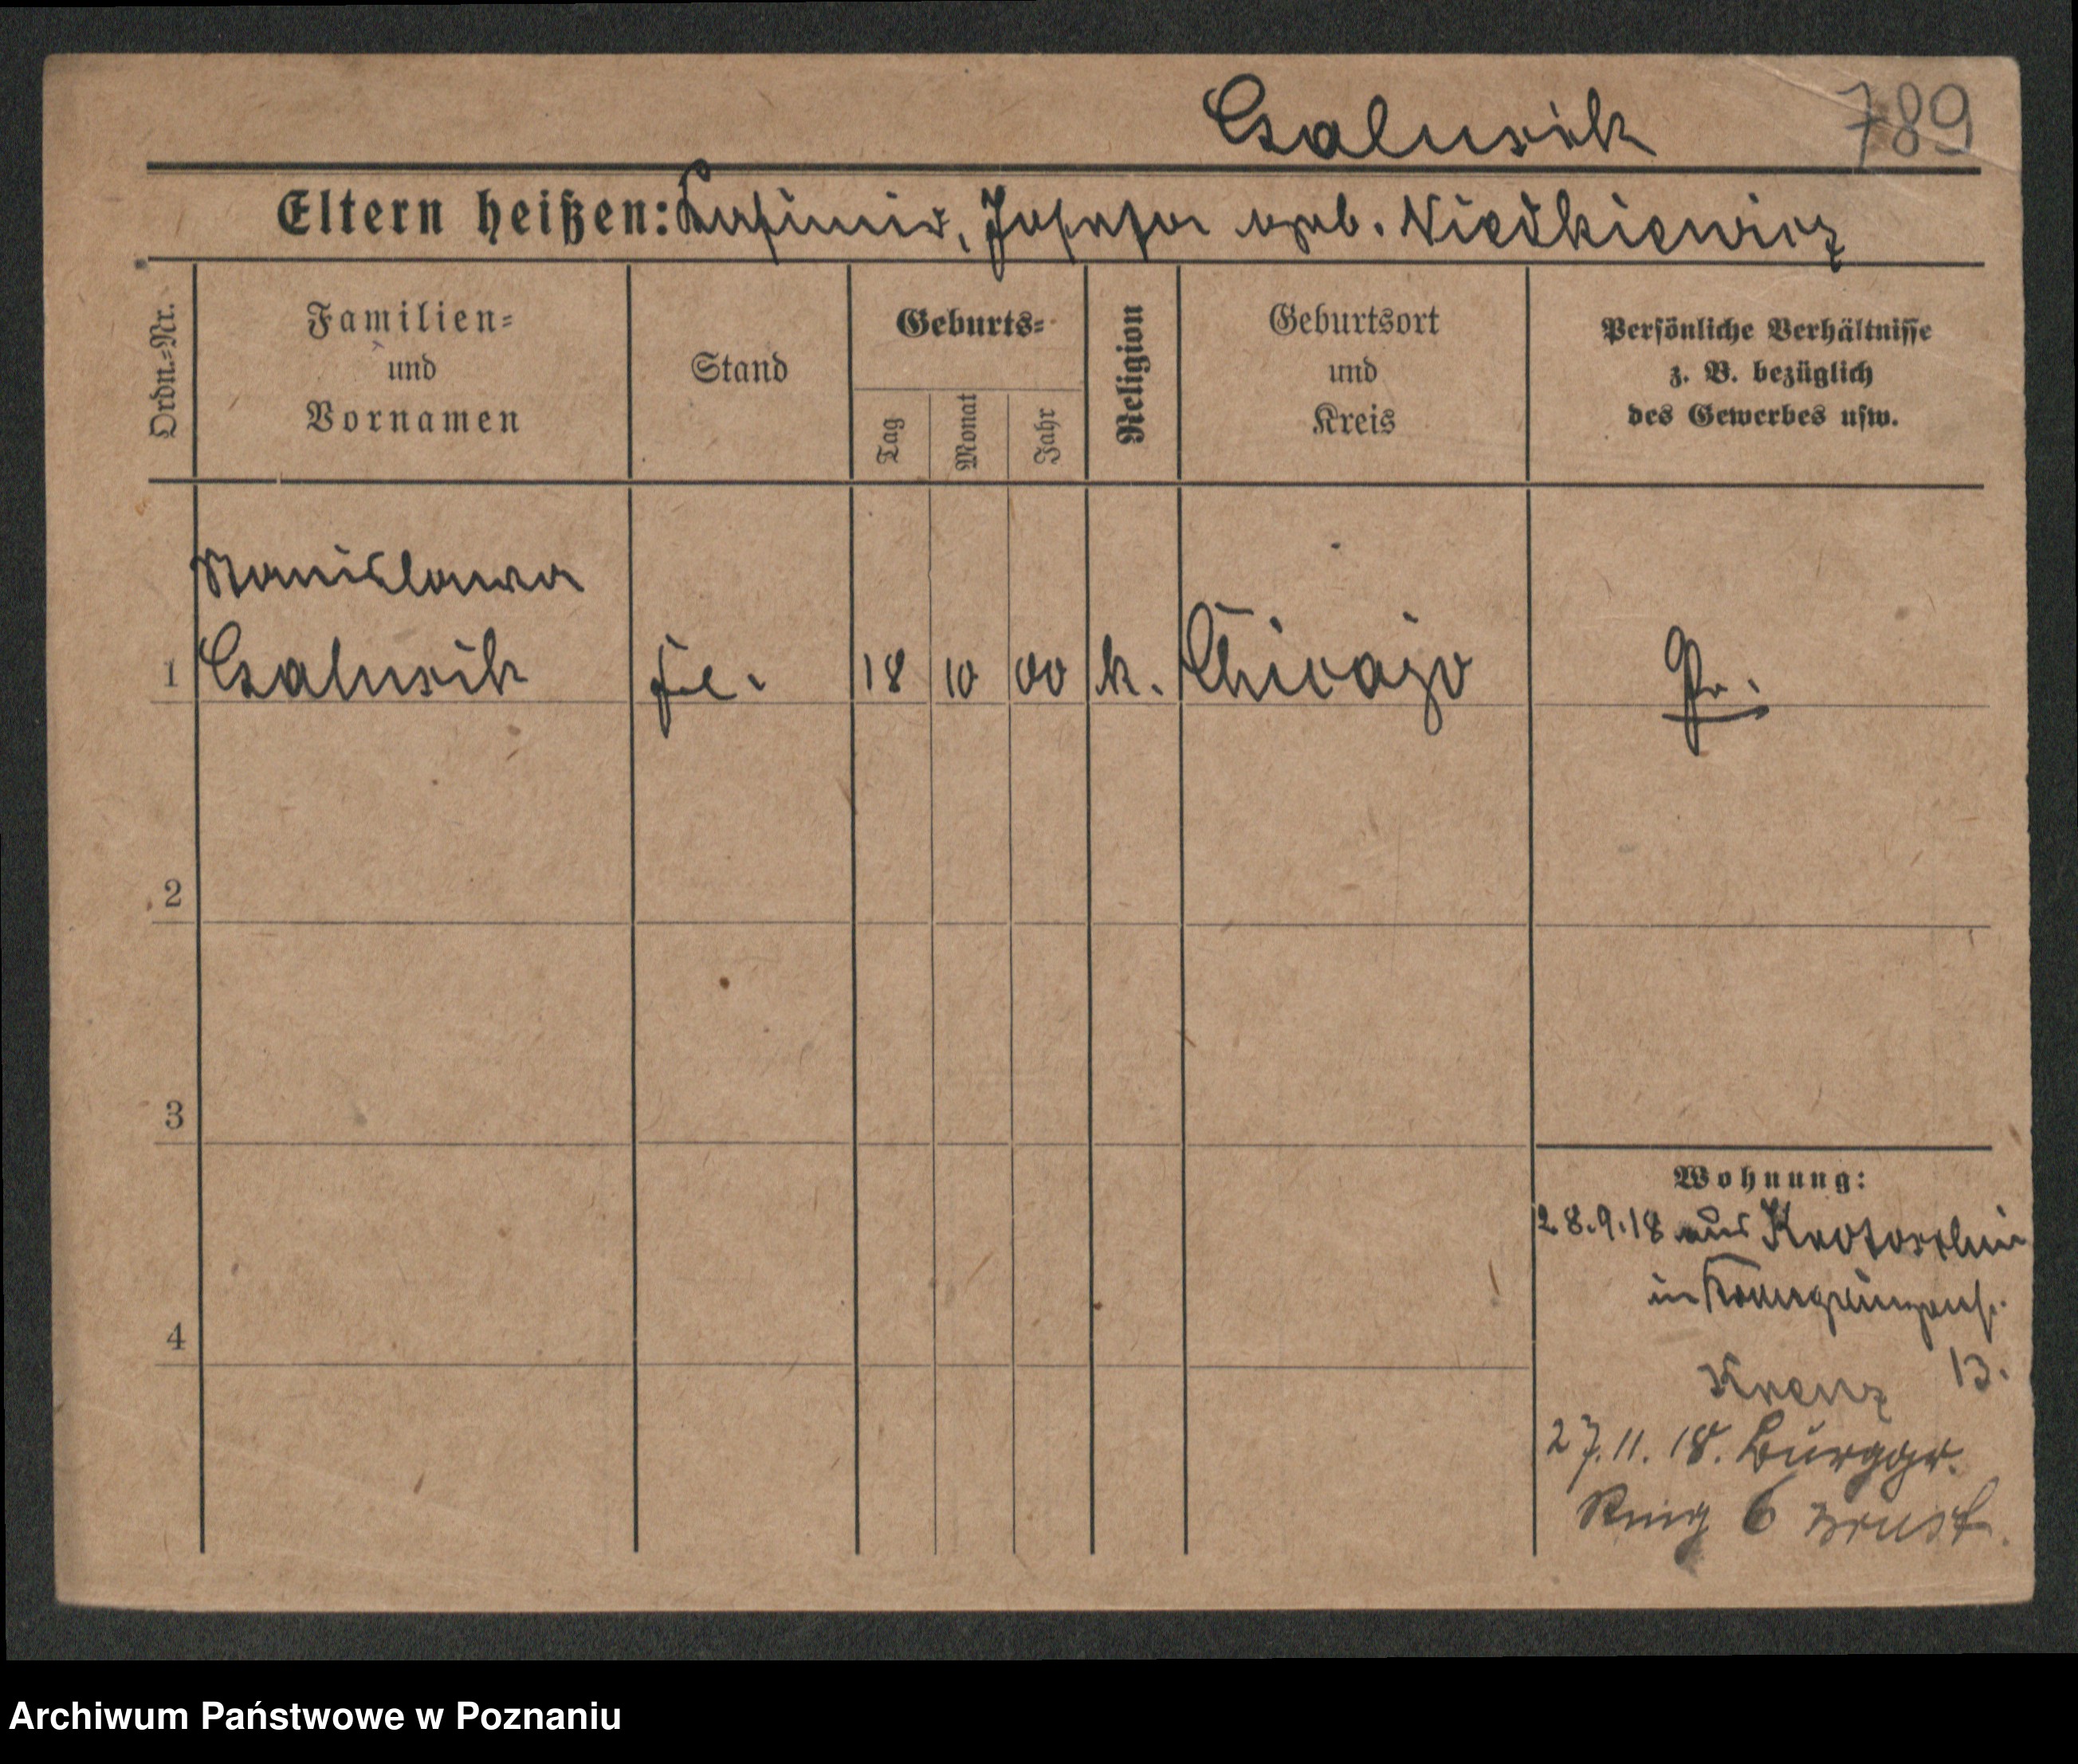 Galusik 789
Eltern heißen: Kasimir, Josefa geb. Niedkiewicz
Ordn.-Nr.
Familien-
und
Vornamen
Stand
Geburts-
Tag
Monat
Jahr
Religion
Geburtsort
und
Kreis
Persönliche Verhältnisse
z. B. bezüglich
des Gewerbes usw.
Stanislawa
1 Galusik 18 10 00 k. Chicago Pr.
2
3
4
Wohnung:
28.9.18 aus Krotoschin
in
13.
27.11.18. Burggr.
Ring 6
Archiwum Państwowe w Poznaniu